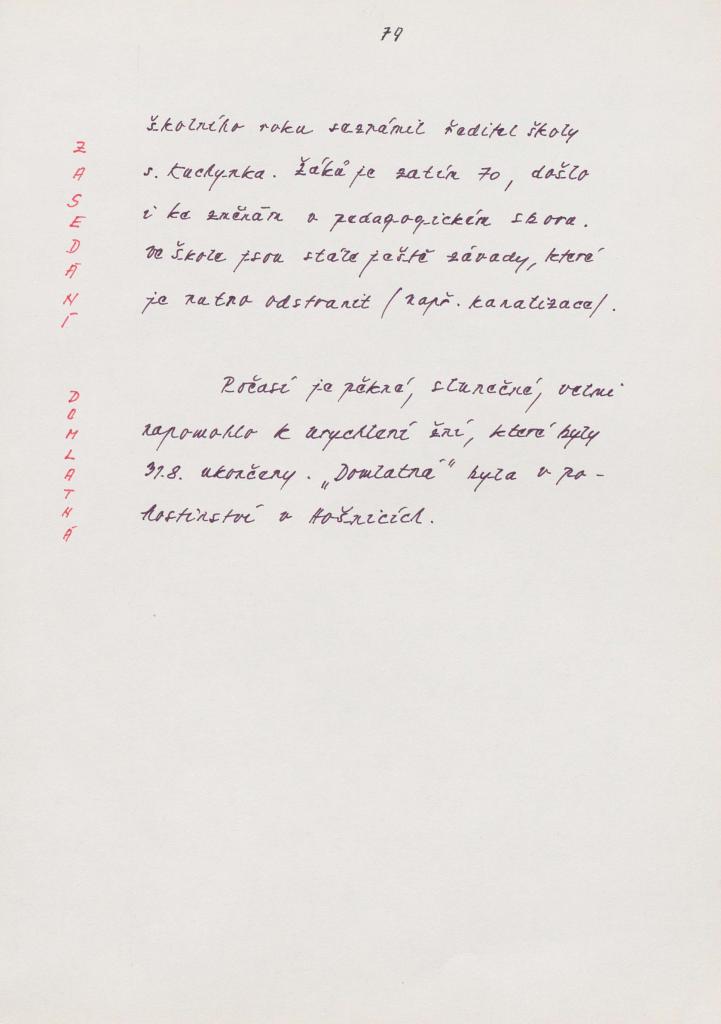 79
školního roku seznámil ředitel školy
s. Kuchynka. Žáků je zatím 70, došlo
i ke změnám v pedagogickém sboru.
Ve škole jsou stále ještě závady, které
je nutno odstranit /např. kanalizace/.
ZASEDÁNÍ
Počasí je pěkné, slunečné, velmi
napomohlo k urychlení žní, které byly
31.8. ukončeny. „Domlatná" byla v po-
hostinství v Hošnicích.
DOMLATNÁ